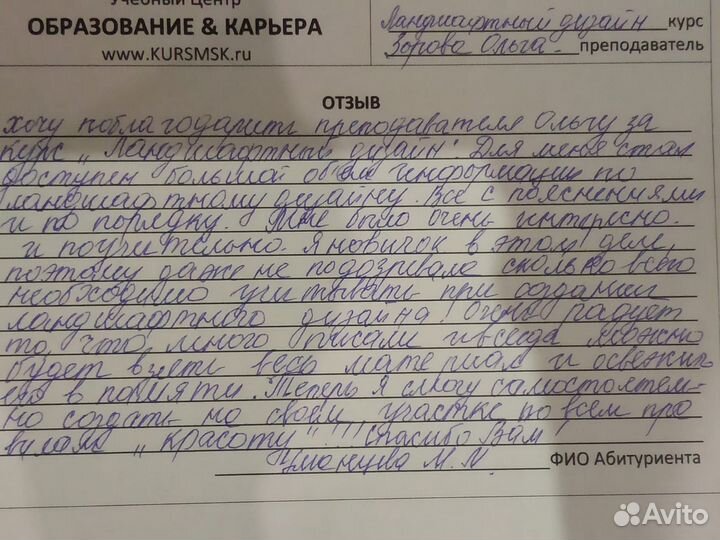 Учебный Центр
ОБРАЗОВАНИЕ & КАРЬЕРА
www.KURSMSK.ru
Ландшафтный дизайн курс
Зорова Ольга преподаватель
ОТЗЫВ
хочу поблагодарить преподавателя Ольгу за
курс „Ландшафтный дизайн". Для меня стал
доступен большой объём информации по
ландшафтному дизайну. Всё с пояснениями
и по порядку. Мне было очень интересно
и поучительно. Я новичок в этом деле
поэтому даже не подозревала сколько всего
необходимо учитывать при создании
ландшафтного дизайна. Очень радует
то, что много писали и всегда можно
будет взять весь материал и освежить
его в памяти. Теперь я смогу самостоятель-
но создать на своём участке по всем пра
вилам „красоту"!!! Спасибо Вам
Уманцева М. М. ФИО Абитуриента
Avito